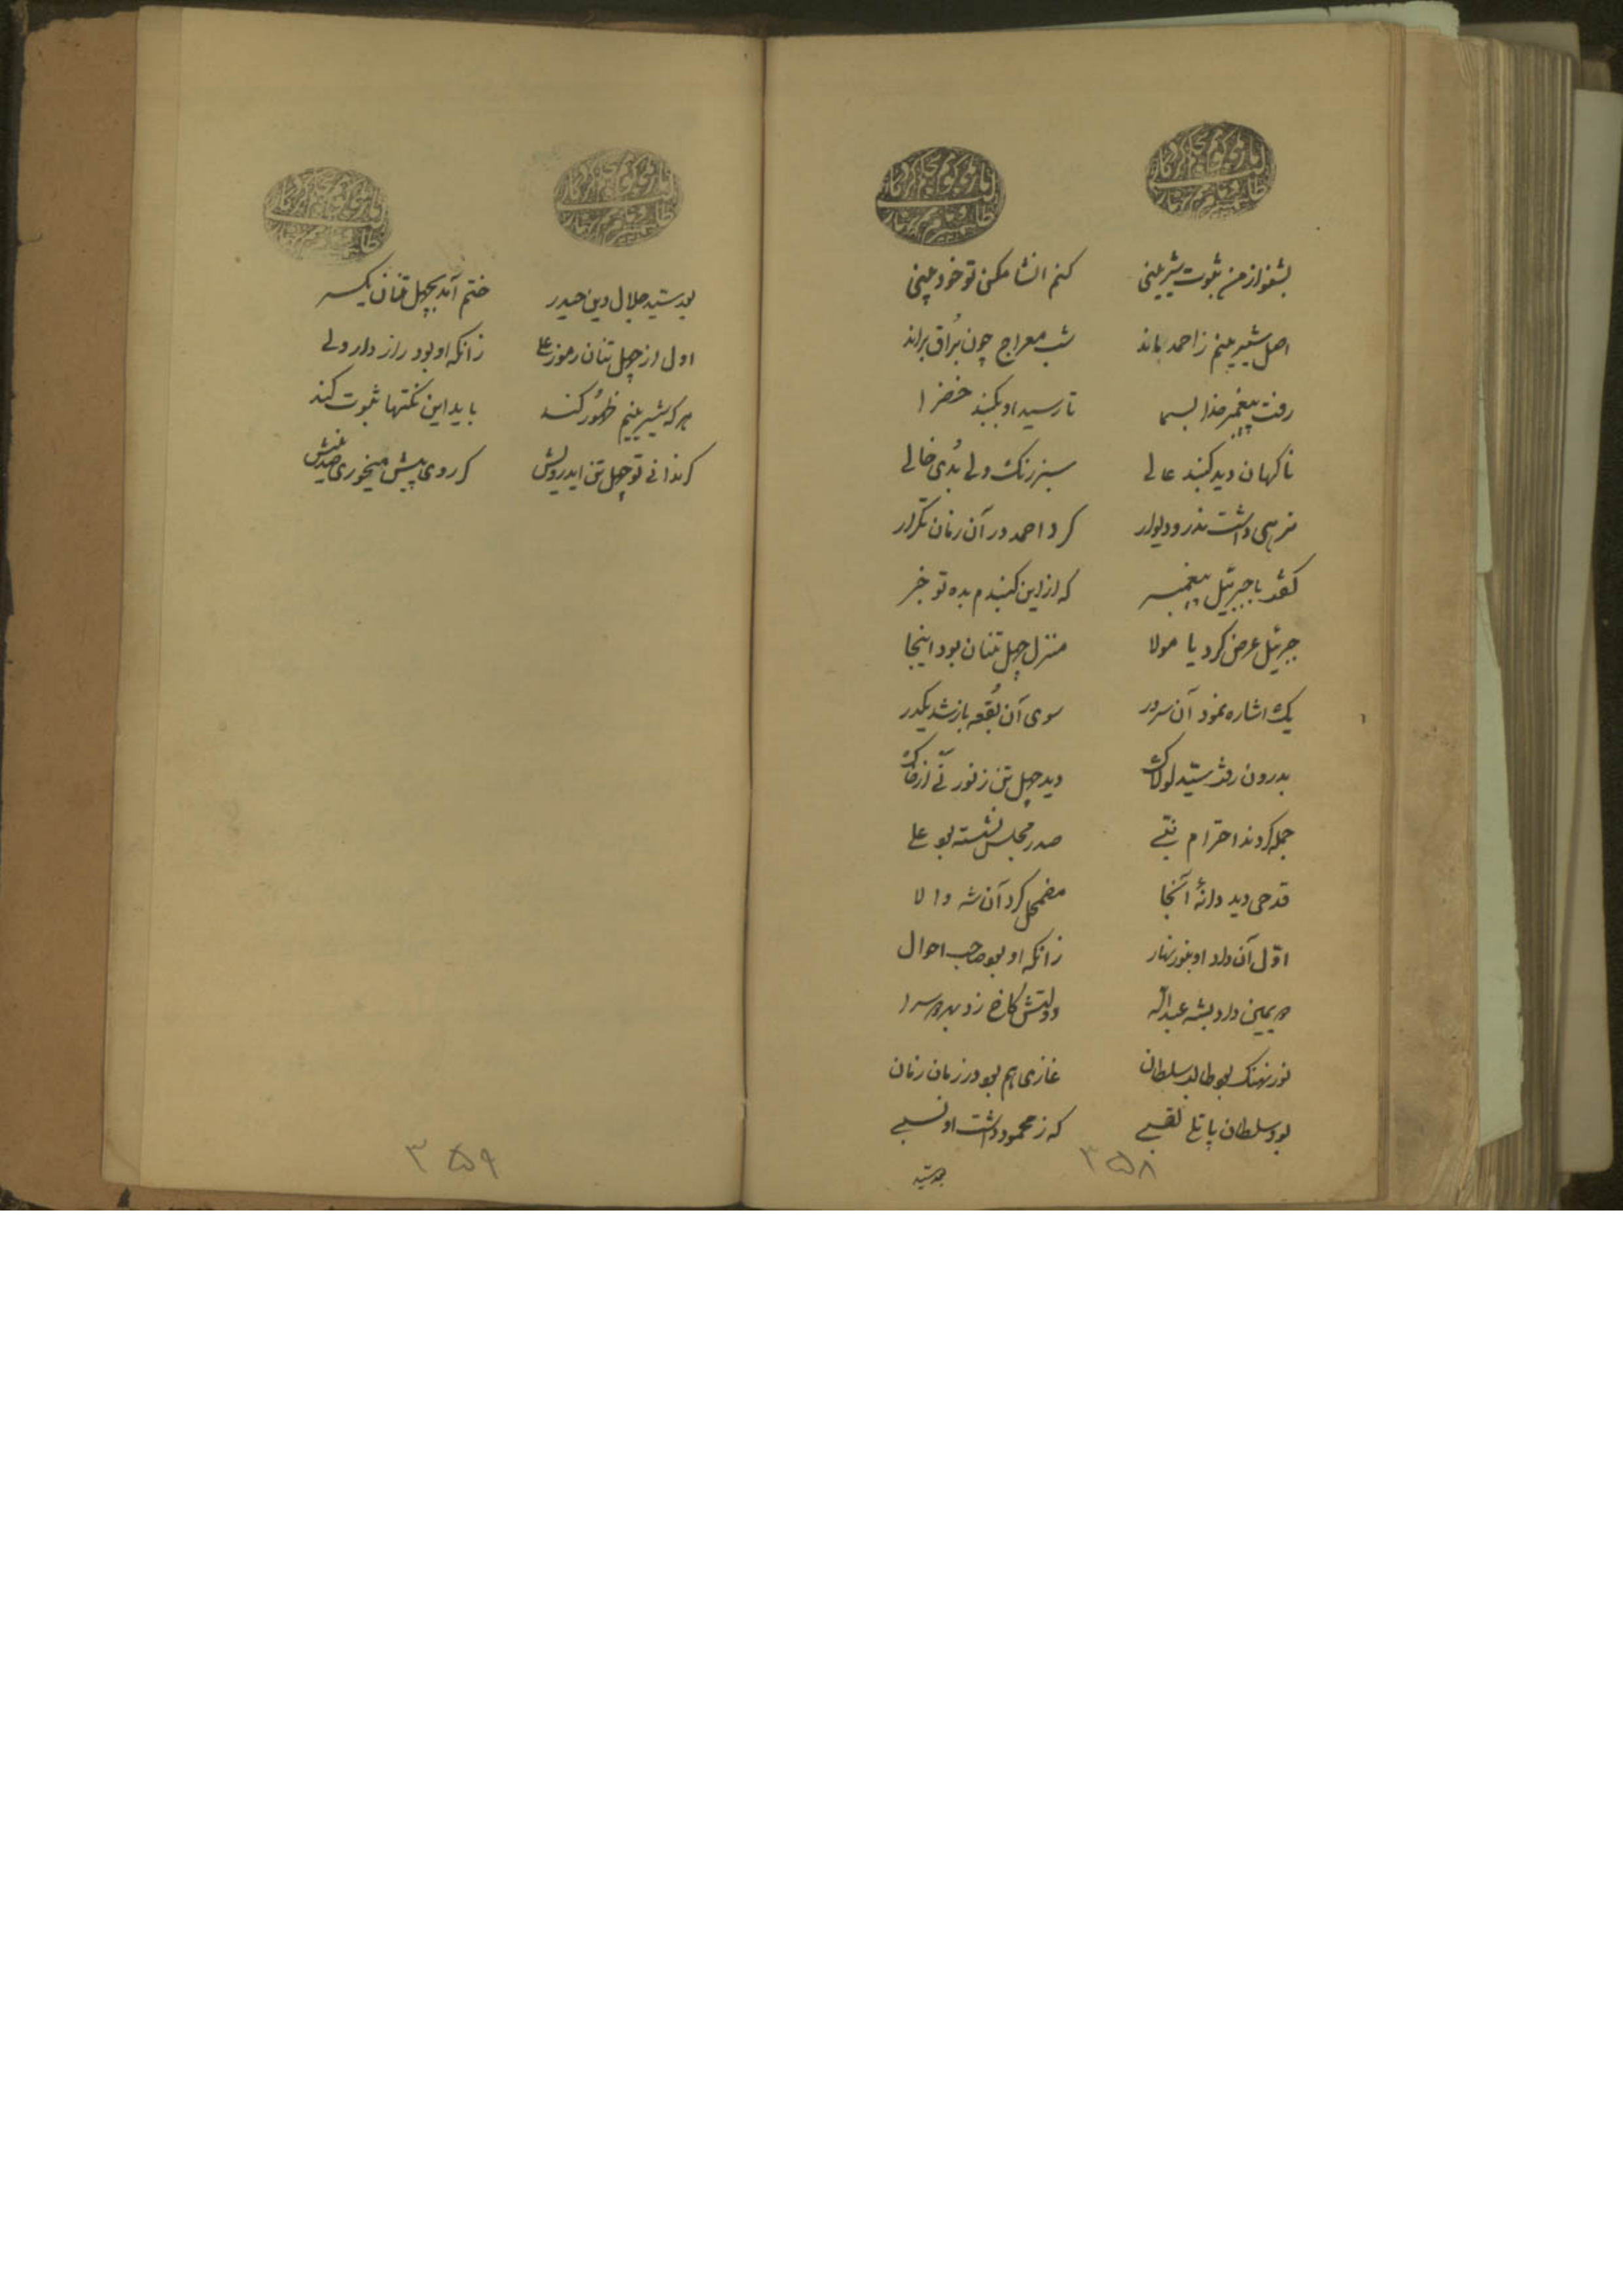 بشنو از من ثبوت شیرینی کنم انشا مکن تو خود بینی
اصل شیرینیم ز احمد ماند شب معراج چون بُراق براند
رفت پیغمبر خدا بسما تا رسید او بگنبد خضرا
ناکهان دید کنبد عالی سبز رنک ولی بُدی خالی
نرهی داشت نه در و دیوار کرد احمد در آن زمان تکرار
کفت با جبرئیل پیغمبر که از این کنبدم بده تو خبر
جبرئیل عرض کرد یا مولا منزل چهل تنان بود اینجا
یک اشاره نمود آن سرور سوی آن بُقعه باز شد یکدر
بدرون رفت سیّد لولاک دید چهل تن ز نور نی از خاک
جمله کردند احترام نبی صدر مجلس نشسته بود علی
قدحی دید دانهٔ آنجا مضمحل کرد آن شه والا
اوّل آن داد او بنور نهار زانکه او بود صاحب احوال
یمین داد بشه عبداله
نور نهنک بود طالب سلطان غازی هم بود در زمان زمان
بود سلطان پاتلی لقبی که ز محمود داشت او نسبی
بود سیّد
۳۵۸
بود سیّد جلال دین حیدر ختم آمد بچهل تنان یکسر
اول از چهل تنان رموز علی زانکه او بود راز دار ولی
هر که شیرینیم ظهُور کند باید این نکتها ثبوت کند
کر ندانی تو چهل تن ایدرویش کر روی پیش میخوری صد نیش
۳۵۹